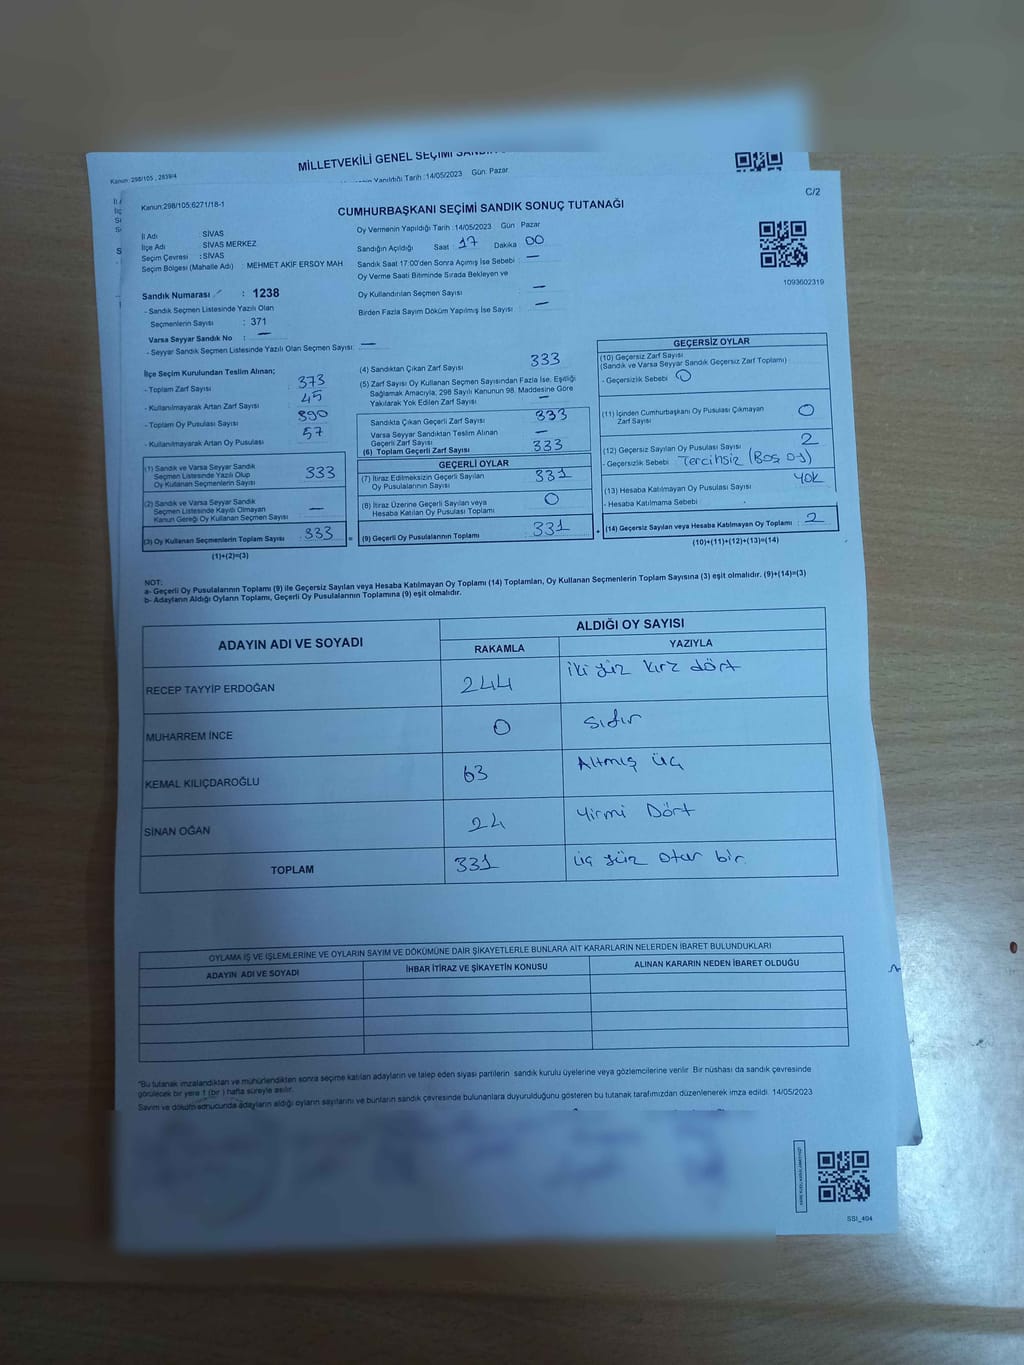 MİLLETVEKİLİ GENEL SEÇİMİ
Kanun: 298/105 , 2839/4
Yapıldığı Tarih :14/05/2023 Gün: Pazar
C/2
Kanun:298/105;6271/18-1
CUMHURBAŞKANI SEÇİMİ SANDIK SONUÇ TUTANAĞI
İl Adı : SİVAS
İlçe Adı SİVAS MERKEZ
Seçim Çevresi : SİVAS
Seçim Bölgesi (Mahalle Adı) : MEHMET AKİF ERSOY MAH.
Sandık Numarası : 1238
- Sandık Seçmen Listesinde Yazılı Olan
Seçmenlerin Sayısı : 371
Varsa Seyyar Sandık No : —
- Seyyar Sandık Seçmen Listesinde Yazılı Olan Seçmen Sayısı: —
Oy Vermenin Yapıldığı Tarih :14/05/2023 Gün : Pazar
Sandığın Açıldığı Saat 17 Dakika 00
Sandık Saat 17:00'den Sonra Açımış İse Sebebi : —
Oy Verme Saati Bitiminde Sırada Bekleyen ve
Oy Kullandırılan Seçmen Sayısı —
Birden Fazla Sayım Döküm Yapılmış İse Sayısı : —
1093602319
İlçe Seçim Kurulundan Teslim Alınan;
- Toplam Zarf Sayısı : 373
- Kullanılmayarak Artan Zarf Sayısı : 45
- Toplam Oy Pusulası Sayısı : 390
- Kullanılmayarak Artan Oy Pusulası : 57
(1) Sandık ve Varsa Seyyar Sandık
Seçmen Listesinde Yazılı Olup
Oy Kullanan Seçmenlerin Sayısı 333
(2) Sandık ve Varsa Seyyar Sandık
Seçmen Listesinde Kayıtlı Olmayan
Kanun Gereği Oy Kullanan Seçmen Sayısı —
(3) Oy Kullanan Seçmenlerin Toplam Sayısı 333 =
(1)+(2)=(3)
(4) Sandıktan Çıkan Zarf Sayısı 333
(5) Zarf Sayısı Oy Kullanan Seçmen Sayısından Fazla İse, Eşitliği
Sağlamak Amacıyla, 298 Sayılı Kanunun 98. Maddesine Göre
Yakılarak Yok Edilen Zarf Sayısı —
Sandıkta Çıkan Geçerli Zarf Sayısı 333
Varsa Seyyar Sandıktan Teslim Alınan
Geçerli Zarf Sayısı —
(6) Toplam Geçerli Zarf Sayısı 333
GEÇERLİ OYLAR
(7) İtiraz Edilmeksizin Geçerli Sayılan
Oy Pusulalarının Sayısı 331
(8) İtiraz Üzerine Geçerli Sayılan veya
Hesaba Katılan Oy Pusulası Toplamı 0
(9) Geçerli Oy Pusulalarının Toplamı 331 +
GEÇERSİZ OYLAR
(10) Geçersiz Zarf Sayısı
(Sandık ve Varsa Seyyar Sandık Geçersiz Zarf Toplamı)
- Geçersizlik Sebebi 0
(11) İçinden Cumhurbaşkanı Oy Pusulası Çıkmayan
Zarf Sayısı 0
(12) Geçersiz Sayılan Oy Pusulası Sayısı 2
- Geçersizlik Sebebi Tercihsiz (Boş oy)
(13) Hesaba Katılmayan Oy Pusulası Sayısı YOK
- Hesaba Katılmama Sebebi
(14) Geçersiz Sayılan veya Hesaba Katılmayan Oy Toplamı : 2
(10)+(11)+(12)+(13)=(14)
NOT:
a- Geçerli Oy Pusulalarının Toplamı (9) ile Geçersiz Sayılan veya Hesaba Katılmayan Oy Toplamı (14) Toplamları, Oy Kullanan Seçmenlerin Toplam Sayısına (3) eşit olmalıdır. (9)+(14)=(3)
b- Adayların Aldığı Oyların Toplamı, Geçerli Oy Pusulalarının Toplamına (9) eşit olmalıdır.
ADAYIN ADI VE SOYADI ALDIĞI OY SAYISI
RAKAMLA YAZIYLA
RECEP TAYYİP ERDOĞAN 244 iki yüz kırk dört
MUHARREM İNCE 0 sıfır
KEMAL KILIÇDAROĞLU 63 Altmış üç
SİNAN OĞAN 24 Yirmi Dört
TOPLAM 331 üç yüz otuz bir
OYLAMA İŞ VE İŞLEMLERİNE VE OYLARIN SAYIM VE DÖKÜMÜNE DAİR ŞİKAYETLERLE BUNLARA AİT KARARLARIN NELERDEN İBARET BULUNDUKLARI
ADAYIN ADI VE SOYADI İHBAR İTİRAZ VE ŞİKAYETİN KONUSU ALINAN KARARIN NEDEN İBARET OLDUĞU
*Bu tutanak imzalandıktan ve mühürlendikten sonra seçime katılan adayların ve talep eden siyasi partilerin sandık kurulu üyelerine veya gözlemcilerine verilir. Bir nüshası da sandık çevresinde
görülecek bir yere 1 (bir ) hafta süreyle asılır.
Sayım ve döküm sonucunda adayların aldığı oyların sayılarını ve bunların sandık çevresinde bulunanlara duyurulduğunu gösteren bu tutanak tarafımızdan düzenlenerek imza edildi. 14/05/2023
SSI_404